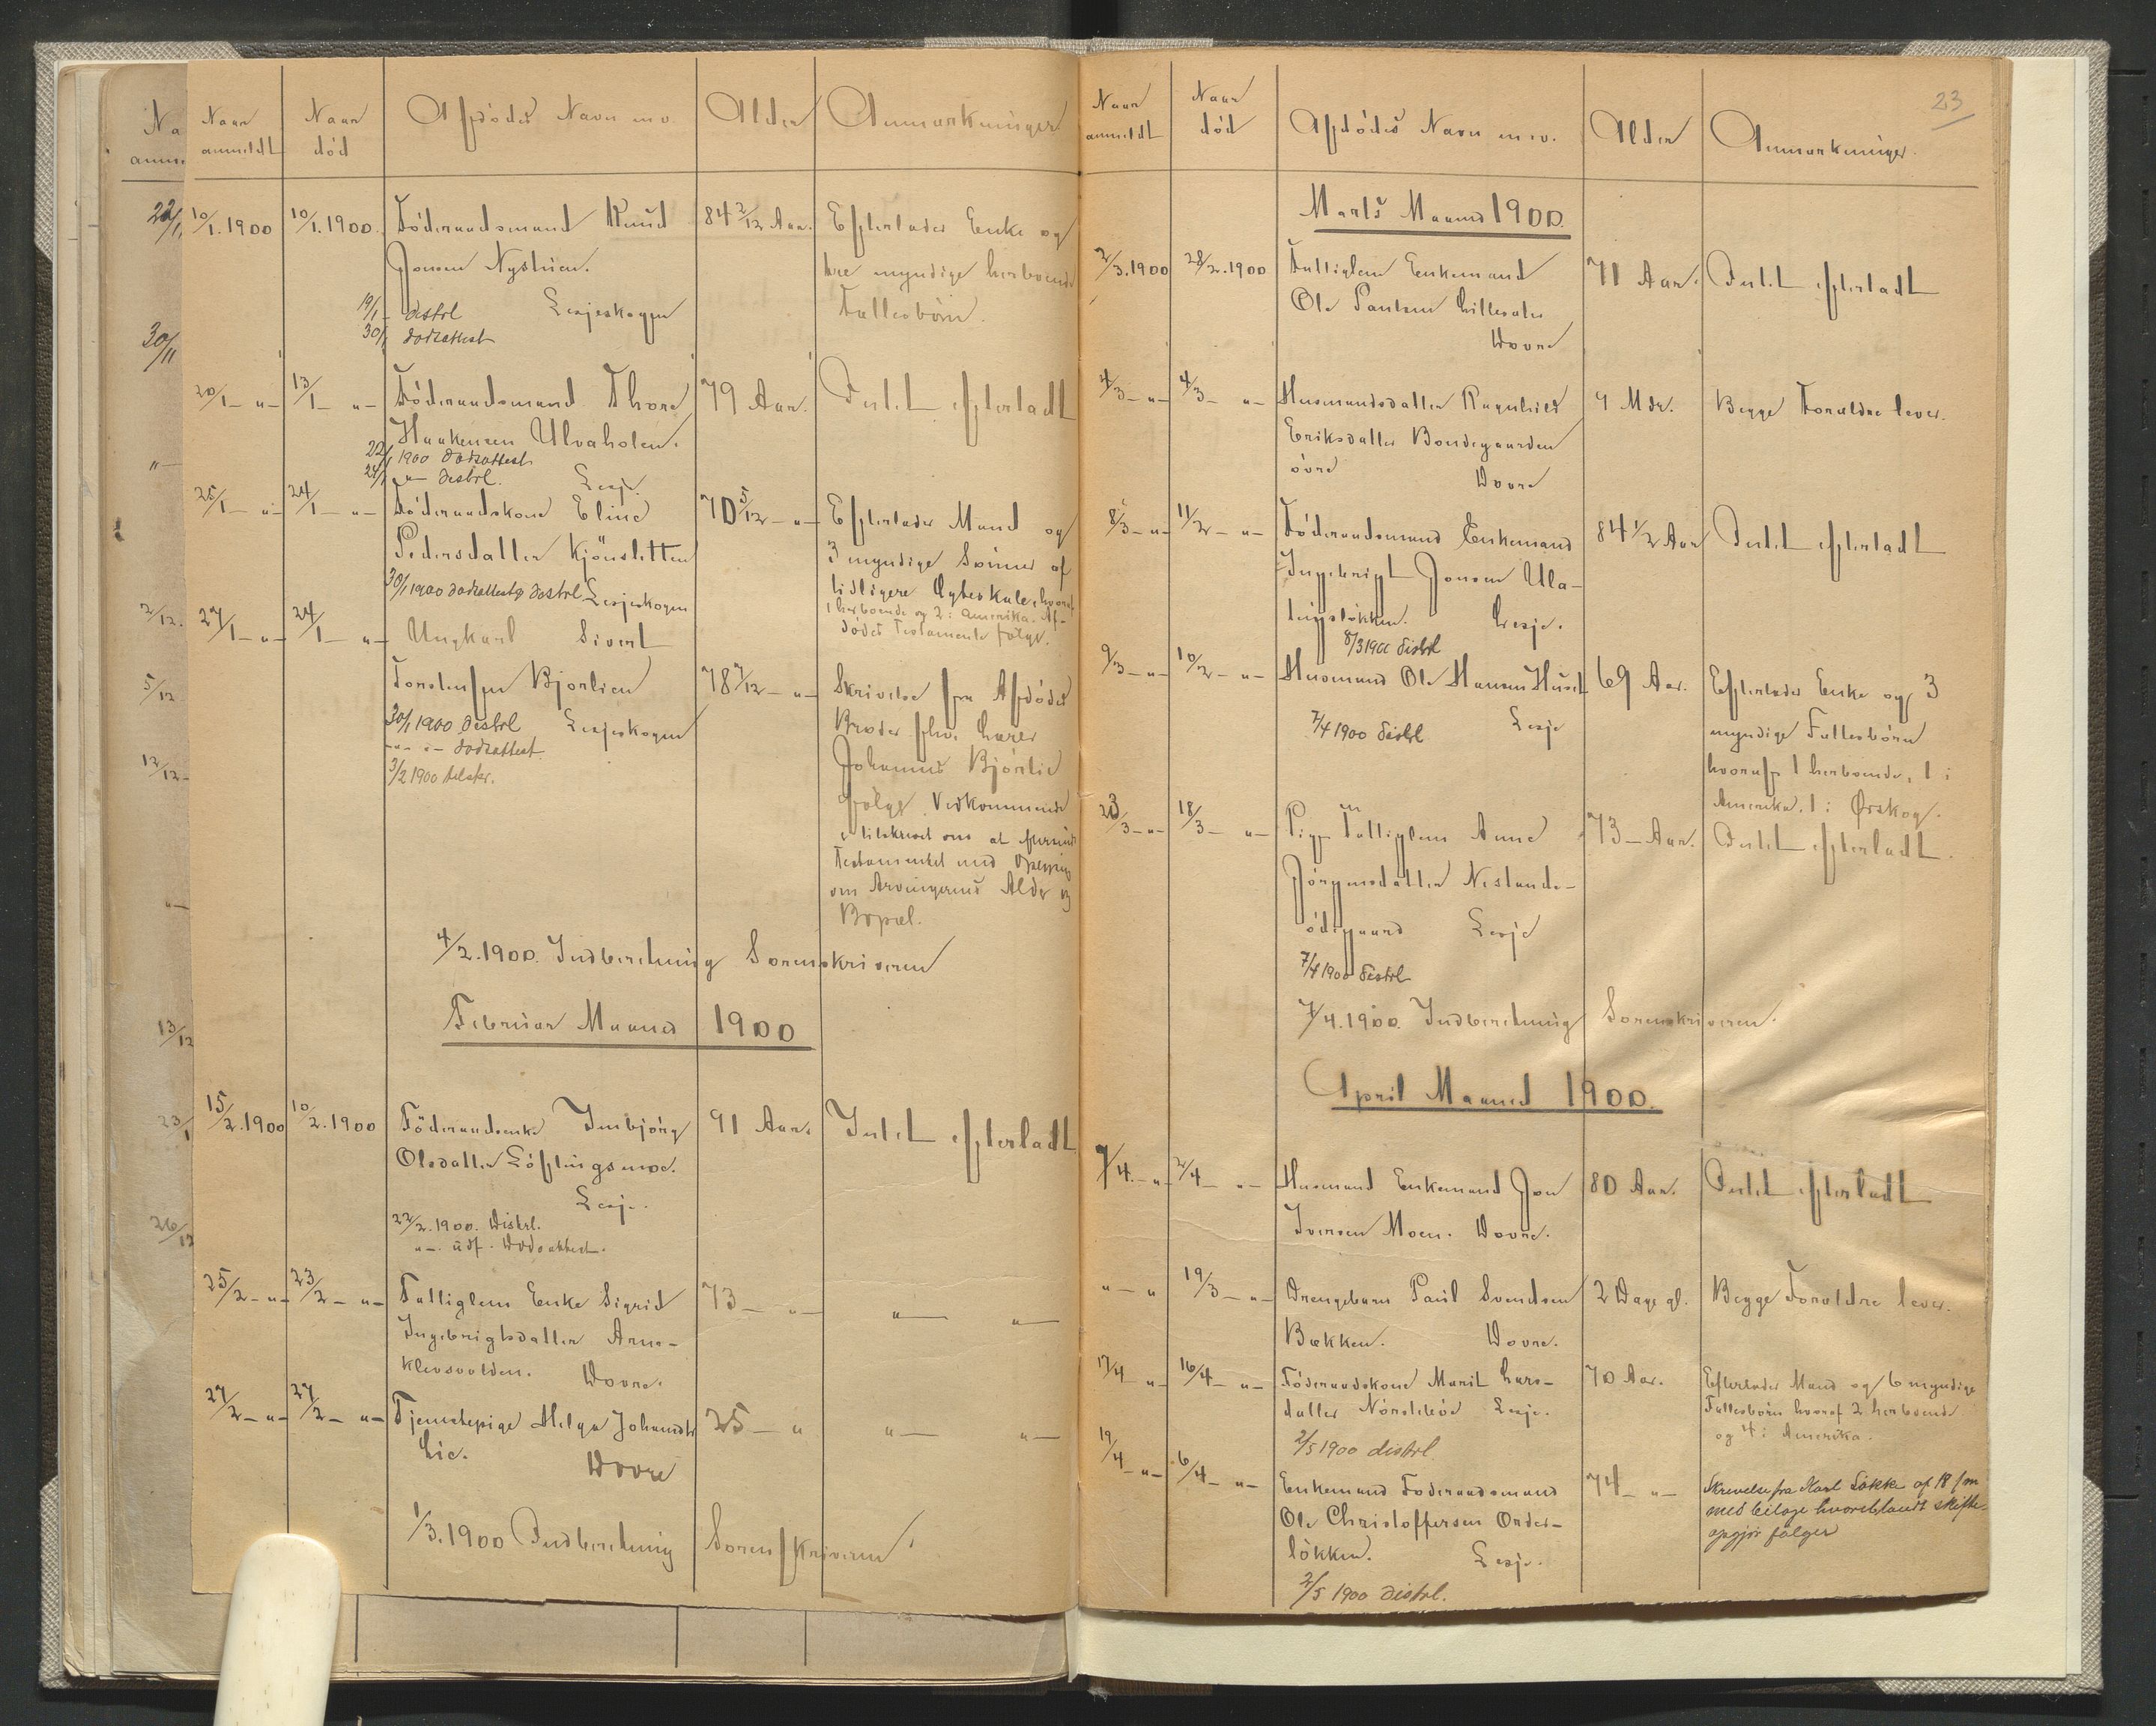 Naar anmeldt
Naar død
Afdødes Navn m.v.
Alder
Anmærkninger
10/1.1900 10/1.1900 Föderaadsmand Knud 84 2/12 Aar. Efterlader Enke og
Jonsen Nystuen. tre myndige herboende
19/1 - distrl Lesjeskogen Fællesbörn.
30/1 dødsattest
20/1 - " - 13/1 - " - Föderaadsmand Thore 79 Aar. Intet efterladt
Haakensen Ulvaholen.
22/1 1900 dødsattest
24/1 - " - distrl. Lesje.
25/1 - " - 24/1 - " - Föderaadskone Eline 70 5/12 - " - Efterlader Mand og
Pedersdatter Kjönsletten 3 myndige Sönner af
30/1 1900 dødsattest og distrl Lesjeskogen tidligere Ægteskab, hvoraf
1 herboende og 2 i Amerika. Af-
dödes Testamente fölger.
27/1 - " - 24/1 - " - Ungkarl Sivert
Torstensen Bjorlien 78 7/12 - " - Skrivelse fra Afdödes
30/1 1900 distrl Lesjeskogen Broder fhv. Lærer
- " - " - dødsattest Johannes Bjorlie
3/2 1900 tilskr. fölger. Vedkommende
er tilskrevet om at fremsende
Testamentet med Opgivning
om Arvingernes Alder og
Bopæl.
4/2.1900. Indberetning Sorenskriveren
Februar Maaned 1900
15/2.1900 10/2.1900 Föderaadsenke Imbjörg 91 Aar. Intet efterladt
Olsdatter Löftingsmoe.
Lesje.
22/2.1900. Distrl.
" -. udf. Dödsattest.
25/2 - " - 23/2 - " - Fattiglem Enke Sigrid 73 - " - " - " -
Ingebrigtsdatter Arne-
klevsvolden. Dovre.
27/2 - " - 27/2 - " - Tjenestepige Helga Johansdtr 25 - " " - " -
Lie. Dovre
1/3.1900 Indberetning Sorenskriveren
23
Naar anmeldt
Naar död
Afdödes Navn m.v.
Alder
Anmærkninger.
Marts Maaned 1900.
2/3.1900 28/2.1900 Fattiglem Enkemand 71 Aar. Intet efterladt
Ole Paulsen Lillesæter
Dovre
4/3 - " - 4/3 - " - Husmandsdatter Ragnhild 9 Mdr. Begge Forældre lever.
Eriksdatter Bondegaarden
övre Dovre
8/3 - " - 11/2 - " - Föderaadsmand Enkemand 84 1/2 Aar Intet efterladt
Ingebrigt Jonsen Ula-
teigslökken. Lesje.
8/3 1900 distrl
9/3 - " - 10/2 - " - Husmand Ole Hansen Huset 69 Aar. Efterlader Enke og 3
7/4 1900 distrl Lesje myndige Fællesbörn
hvoraf 1 herboende, 1 i
Amerika, 1 i Ørskog.
23/3 - " - 18/3 - " - Pige Fattiglem Anne 73 - Aar. Intet efterladt.
Jörgensdatter Neslands-
ödegaard Lesje
7/4 1900 distrl
7/4.1900. Indberetning Sorenskriveren.
April Maaned 1900.
7/4. - " - 2/4 - " - Husmand Enkemand Jon 80 Aar. Intet efterladt
Iversen Moen. Dovre.
" - " 19/3 - " - Drengebarn Paul Svendsen 2 Dage gl. Begge Forældre lever.
Bækken. Dovre.
17/4 - " - 16/4 - " - Föderaadskone Marit Lars- 70 Aar. Efterlader Mand og 6 myndige
datter Nörsteböe Lesje. Fællesbörn hvoraf 2 herboende
2/5 1900 distrl og 4 i Amerika.
19/4 - " - 6/4 - " - Enkemand Föderaadsmand 74 - " - Skrivelse fra Karl Lökke af 18 ds.
Ole Christoffersen Order- med bilage hvoriblandt skifte-
lökken. Lesje. opgjör fölger
2/5 1900 distrl.